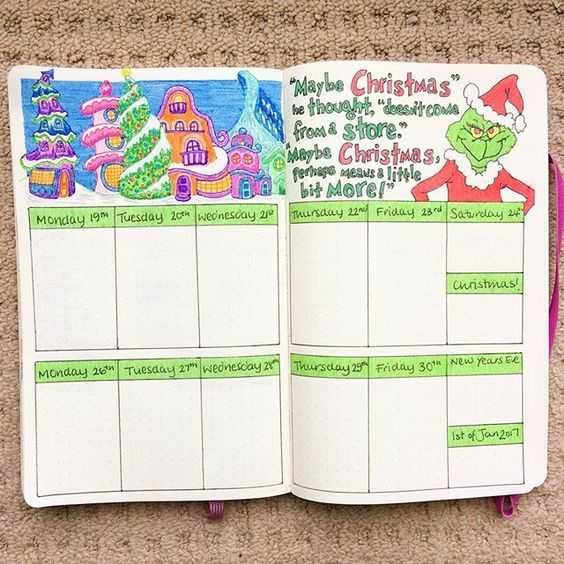 "Maybe Christmas"
he thought, "doesn't come
from a store."
"Maybe Christmas,
Perhaps means a little
bit More!"
Monday 19th Tuesday 20th Wednesday 21st Thursday 22nd Friday 23rd Saturday 24th
Christmas!
Monday 26th Tuesday 27th Wednesday 28th Thursday 29th Friday 30th New Years Eve
1st of Jan 2017